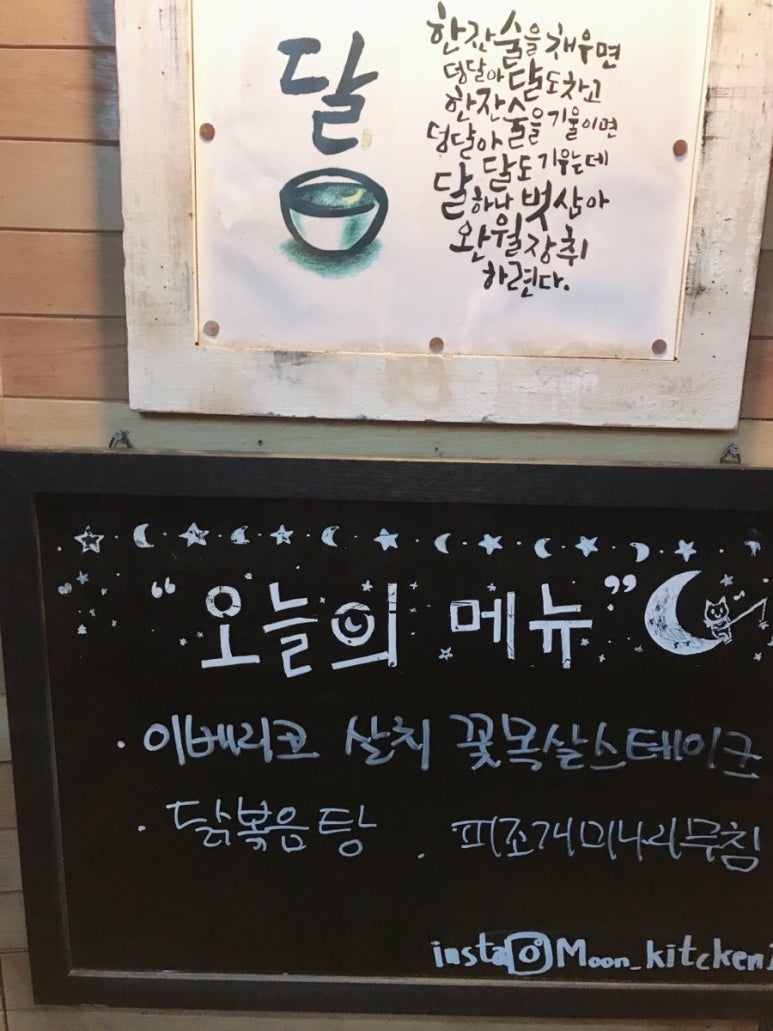 달
한잔 술을 채우면
덩달아 달도 차고
한잔 술을 기울이면
덩달아
달도 기우는데
달 하나 벗 삼아
완월장취
하련다.
"오늘의 메뉴"
· 이베리코 살치 꽃목살스테이크
· 닭볶음탕 . 피조개미나리무침
insta Moon_kitcken